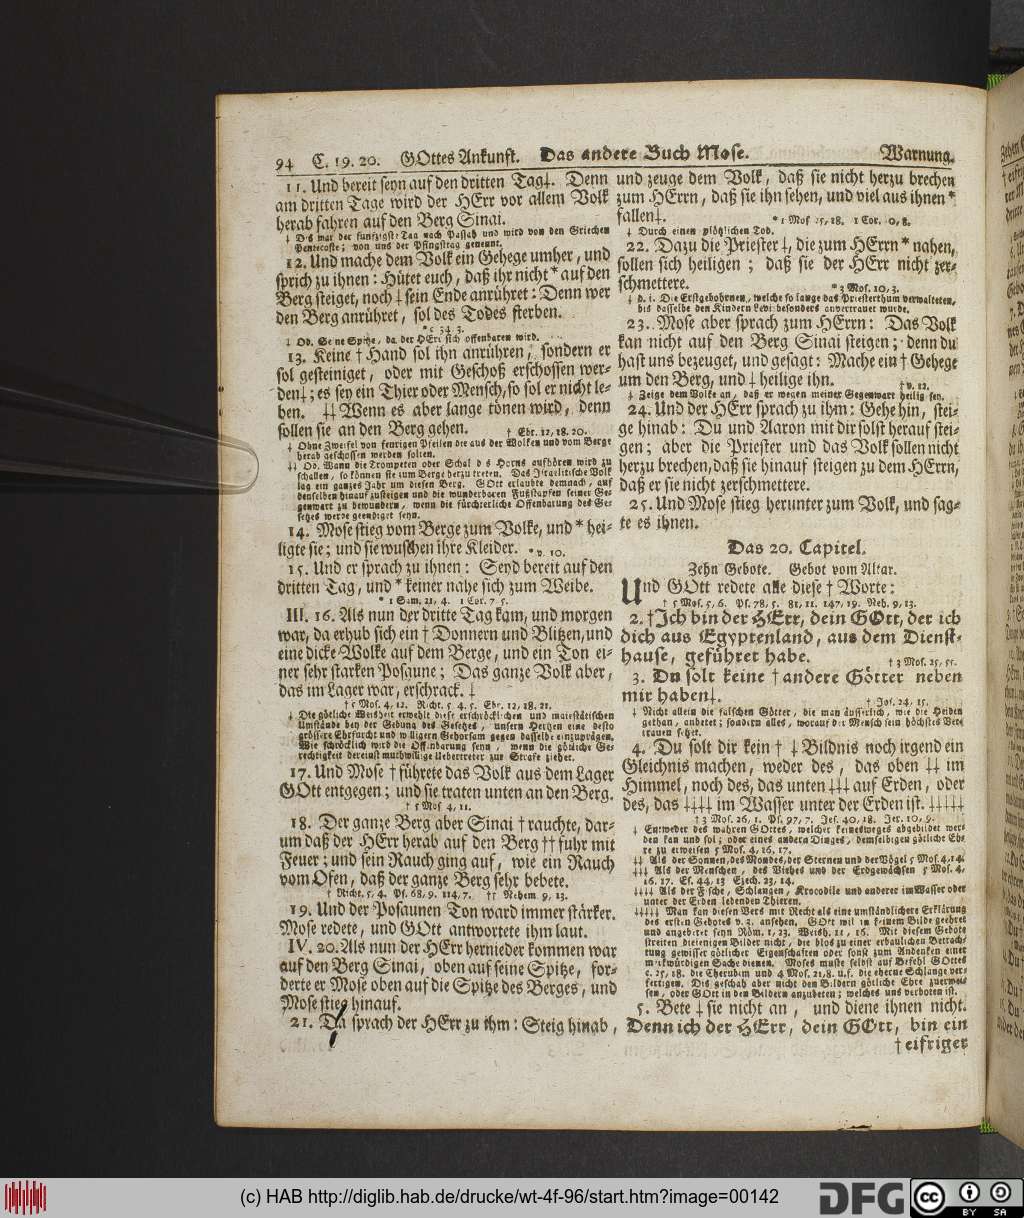 94 C. 19. 20. GOttes Ankunft. Das andere Buch Mose. Warnung.
11. Und bereit seyn auf den dritten Tag‡. Denn
am dritten Tage wird der HErr vor allem Volk
herab fahren auf den Berg Sinai.
‡ Dis war der funfzigste Tag nach Passah und wird von den Griechen
Pentecoste; von uns der Pfingsttag genennt.
12. Und mache dem Volk ein Gehege umher, und
sprich zu ihnen: Hütet euch, daß ihr nicht * auf den
Berg steiget, noch ‡ sein Ende anrühret: Denn wer
den Berg anrühret, sol des Todes sterben.
* c 34, 3.
‡ Od. Seine Spitze, da der HErr sich offenbaren wird.
13. Keine † Hand sol ihn anrühren, sondern er
sol gesteiniget, oder mit Geschoß erschossen wer-
den‡; es sey ein Thier oder Mensch, so sol er nicht le-
ben. ‡‡ Wenn es aber lange tönen wird, denn
sollen sie an den Berg gehen. † Ebr. 12, 18. 20.
‡ Ohne Zweifel von feurigen Pfeilen die aus der Wolken und vom Berge
herab geschossen werden solten.
‡‡ Od. Wann die Trompeten oder Schal des Horns aufhören wird zu
schallen, so können sie zum Berge herzu treten. Das Israelitische Volk
lag ein ganzes Jahr um diesen Berg. GOtt erlaubte demnach, auf
denselben hinauf zusteigen und die wunderbaren Fußstapfen seiner Ge-
genwart zu bewundern, wenn die fürchterliche Offenbarung des Ge-
setzes werde geendiget seyn.
14. Mose stieg vom Berge zum Volke, und * hei-
ligte sie; und sie wuschen ihre Kleider. * v. 10.
15. Und er sprach zu ihnen: Seyd bereit auf den
dritten Tag, und * keiner nahe sich zum Weibe.
* 1 Sam. 21, 4. 1 Cor. 7 5.
III. 16. Als nun der dritte Tag kam, und morgen
war, da erhub sich ein † Donnern und Blitzen, und
eine dicke Wolke auf dem Berge, und ein Ton ei-
ner sehr starken Posaune; Das ganze Volk aber,
das im Lager war, erschrack. ‡
† 5 Mos. 4, 12. Richt. 5 4. 5. Ebr. 12, 18. 21.
‡ Die götliche Weisheit erwehlt diese erschröcklichen und maiestätischen
Umstände bey der Gebung des Gesetzes, unsern Hertzen eine desto
grössere Ehrfurcht und willigern Gehorsam gegen dasselbe einzuprägen.
Wie schröcklich wird die Offenbarung seyn, wenn die götliche Ge-
rechtigkeit dereinst muthwillige Uebertreter zur Strafe ziehet.
17. Und Mose † führete das Volk aus dem Lager
GOtt entgegen; und sie traten unten an den Berg.
† 5 Mos 4, 11.
18. Der ganze Berg aber Sinai † rauchte, dar-
um daß der HErr herab auf den Berg †† fuhr mit
Feuer; und sein Rauch ging auf, wie ein Rauch
vom Ofen, daß der ganze Berg sehr bebete.
† Richt. 5, 4. Ps. 68, 9. 114, 7. †† Nehem. 9, 13.
19. Und der Posaunen Ton ward immer stärker.
Mose redete, und GOtt antwortete ihm laut.
IV. 20. Als nun der HErr hernieder kommen war
auf den Berg Sinai, oben auf seine Spitze, for-
derte er Mose oben auf die Spitze des Berges, und
Mose stieg hinauf.
21. Da sprach der HErr zu ihm: Steig hinab,
und zeuge dem Volk, daß sie nicht herzu brechen
zum HErrn, daß sie ihn sehen, und viel aus ihnen *
fallen‡. * 1 Mos 25, 18. 1 Cor. 10, 8.
‡ Durch einen plötzlichen Tod.
22. Dazu die Priester ‡, die zum HErrn * nahen,
sollen sich heiligen; daß sie der HErr nicht zer-
schmettere. * 3 Mos. 10, 3.
‡ d. i. Die Erstgebohrnen, welche so lange das Priesterthum verwalteten,
bis dasselbe den Kindern Levi besonders anvertrauet wurde.
23. Mose aber sprach zum HErrn: Das Volk
kan nicht auf den Berg Sinai steigen; denn du
hast uns bezeuget, und gesagt: Mache ein † Gehege
um den Berg, und ‡ heilige ihn. † v. 12.
‡ Zeige dem Volke an, daß er wegen meiner Gegenwart heilig sey.
24. Und der HErr sprach zu ihm: Gehe hin, stei-
ge hinab: Du und Aaron mit dir solst herauf stei-
gen; aber die Priester und das Volk sollen nicht
herzu brechen, daß sie hinauf steigen zu dem HErrn,
daß er sie nicht zerschmettere.
25. Und Mose stieg herunter zum Volk, und sag-
te es ihnen.
Das 20. Capitel.
Zehn Gebote. Gebot vom Altar.
Und GOtt redete alle diese † Worte:
† 5 Mos. 5, 6. Ps. 78, 5. 81, 11. 147, 19. Neh. 9, 13.
2. † Ich bin der HErr, dein GOtt, der ich
dich aus Egyptenland, aus dem Dienst-
hause, geführet habe. † 3 Mos. 25, 55.
3. Du solt keine † andere Götter neben
mir haben‡. † Jos. 24, 15.
‡ Nicht allein die falschen Götter, die man äusserlich, wie die Heiden
gethan, anbetet; sondern alles, worauf der Mensch sein höchstes Ver-
trauen setzet.
4. Du solt dir kein † ‡ Bildnis noch irgend ein
Gleichnis machen, weder des, das oben ‡‡ im
Himmel, noch des, das unten ‡‡‡ auf Erden, oder
des, das ‡‡‡‡ im Wasser unter der Erden ist. ‡‡‡‡‡
† 3 Mos. 26, 1. Ps. 97, 7. Jes. 40, 18. Jer. 10, 9.
‡ Entweder des wahren GOttes, welcher keinesweges abgebildet wer-
den kan und sol; oder eines andern Dinges, demselbigen götliche Eh-
re zu erweisen 5 Mos. 4, 16. 17.
‡‡ Als der Sonnen, des Mondes, der Sternen und der Vögel 5 Mos. 4, 14.
‡‡‡ Als der Menschen, des Viehes und der Erdgewächsen 5 Mos. 4,
16. 17. Es. 44, 13 Ezech. 23, 14.
‡‡‡‡ Als der Fische, Schlangen, Krocodile und anderer im Wasser oder
unter der Erden lebenden Thieren.
‡‡‡‡‡ Man kan diesen Vers mit Recht als eine umständlichere Erklärung
des ersten Gebotes v. 3. ansehen. GOtt wil in keinem Bilde geehret
und angebetet seyn Röm. 1, 23. Weish. 11, 16. Mit diesem Gebote
streiten dieienigen Bilder nicht, die blos zu einer erbaulichen Betrach-
tung gewisser götlicher Eigenschaften oder sonst zum Andenken einer
merkwürdigen Sache dienen. Moses muste selbst auf Befehl GOttes
c. 25, 18. die Cherubim und 4 Mos. 21, 8. u. f. die eherne Schlange ver-
fertigen. Dis geschah aber nicht den Bildern götliche Ehre zuerwei-
sen, oder GOtt in den Bildern anzubeten; welches uns verboten ist.
5. Bete ‡ sie nicht an, und diene ihnen nicht.
Denn ich der HErr, dein GOtt, bin ein
† eifriger
(c) HAB http://diglib.hab.de/drucke/wt-4f-96/start.htm?image=00142
DFG
cc BY SA